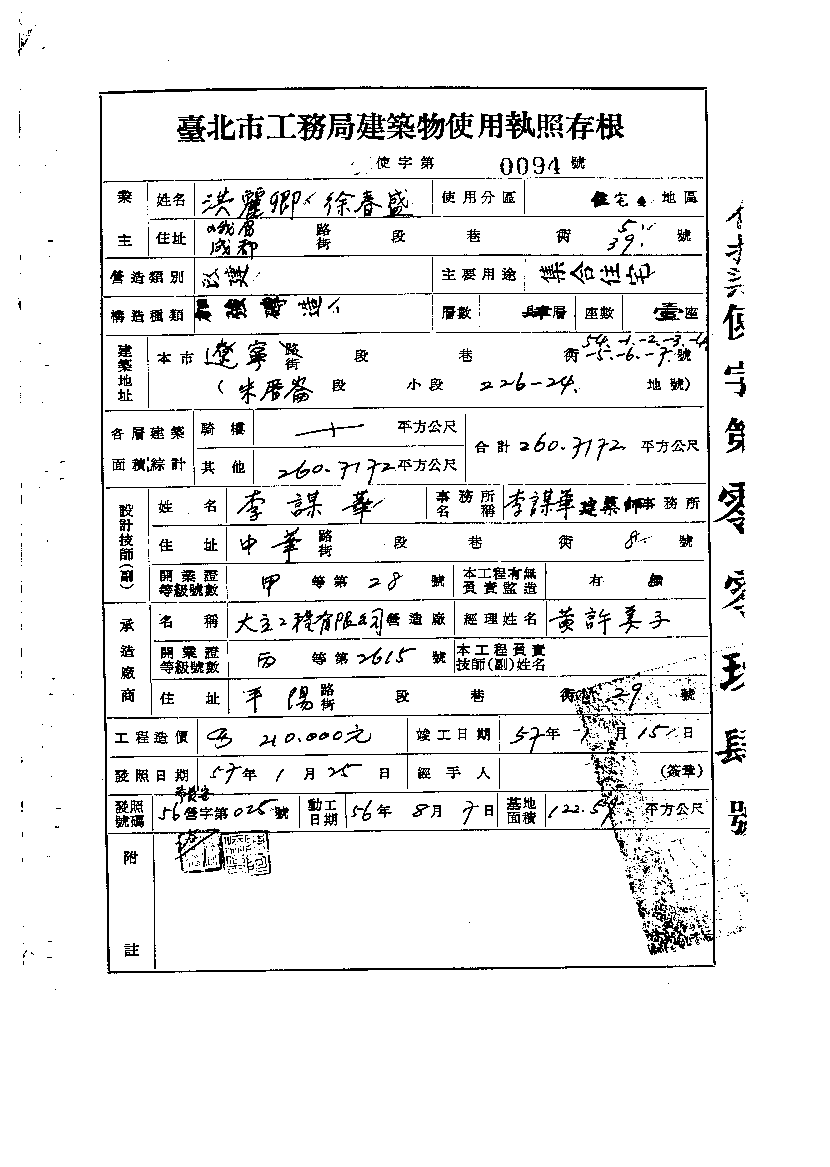 臺北市工務局建築物使用執照存根
使字第 0094 號
業主 姓名 洪麗卿、徐春盛 使用分區 住宅 地區
住址 峨眉 成都 路街 段 巷 衖 5 39 號
營造類別 改建 主要用途 集合住宅
構造種類 加強磚造 層數 肆層 座數 壹座
建築地址 本市 遼寧 路街 段 巷 衖 54.-1.-2.-3.-4 -5.-6.-7. 號
(朱厝崙 段 小段 226-24. 地號)
各層建築面積綜計 騎樓 平方公尺 合計 260.7172 平方公尺
其他 260.7172 平方公尺
設計技師(副) 姓名 李謀華 事務所名稱 李謀華建築師事務所
住址 中華 路街 段 巷 衖 8 號
開業證等級號數 甲 等第 28 號 本工程有無負責監造 有 無
承造廠商 名稱 大立工程有限公司 營造廠 經理姓名 黃許美子
開業證等級號數 丙 等第 2615 號 本工程負責技師(副)姓名
住址 平陽 路街 段 巷 衖 29 號
工程造價 210.000元 竣工日期 57年 1 月 15 日
發照日期 57年 1 月 25 日 經手人 (簽章)
發照號碼 56 營字第 025 號 動工日期 56年 8月 7日 基地面積 122.59 平方公尺
附註
使字第零零玖肆號